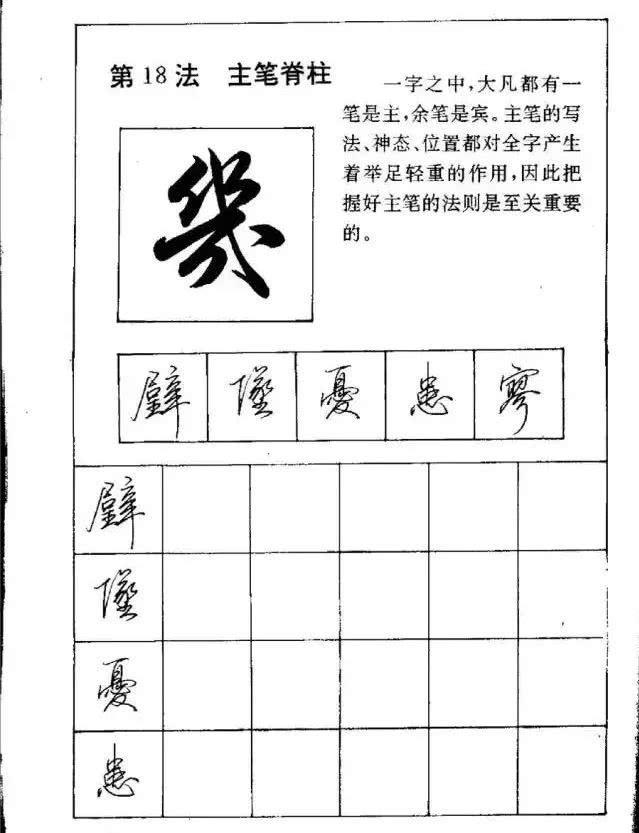 第18法　主笔脊柱
一字之中,大凡都有一
笔是主,余笔是宾。主笔的写
法、神态、位置都对全字产生
着举足轻重的作用,因此把
握好主笔的法则是至关重要
的。
幾
壁 墜 憂 患 寥
壁
墜
憂
患